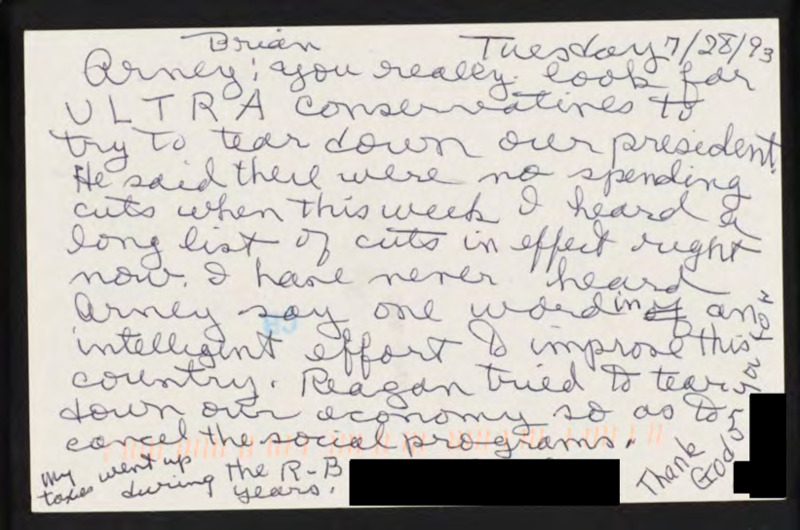 Brian Tuesday 7/28/93
Arney! you really look for
ULTRA conservatives to
try to tear down our president.
He said there were no spending
cuts when this week I heard a
long list of cuts in effect right
now. I have never heard
Arney say one word in of an
intelligent effort to improve this
country. Reagan tried to tear
down our economy so as to
cancel the social programs.
My taxes went up
during the R-B
years.
Thank
God